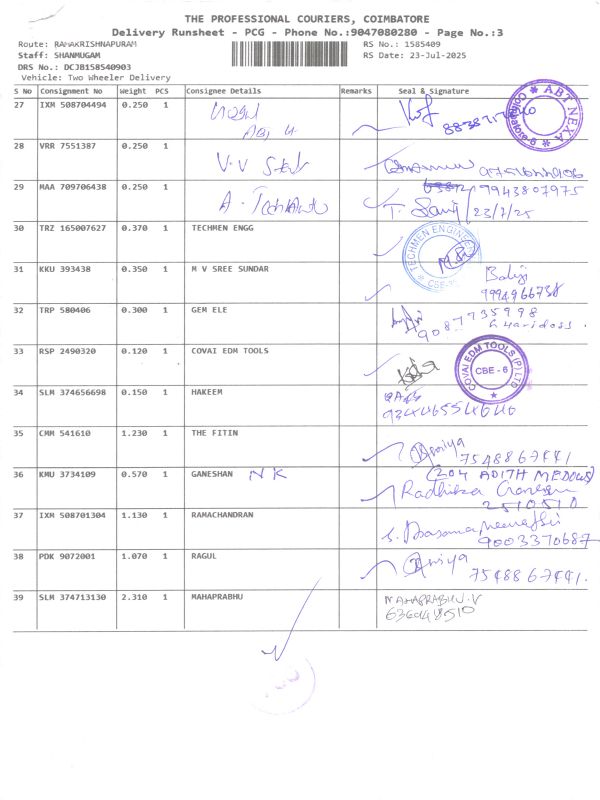 THE PROFESSIONAL COURIERS, COIMBATORE
Delivery Runsheet - PCG - Phone No.:9047080280 - Page No.:3
Route: RAMAKRISHNAPURAM RS No.: 1585409
Staff: SHANMUGAM RS Date: 23-Jul-2025
DRS No.: DCJB158540903
Vehicle: Two Wheeler Delivery
S No Consignment No Weight PCS Consignee Details Remarks Seal & Signature
27 IXM 508704494 0.250 1
ABT NEXA
Coimbatore-6
28 VRR 7551387 0.250 1 V.V
29 MAA 709706438 0.250 1 A.
9943807975
T. 23/7/25
30 TRZ 165007627 0.370 1 TECHMEN ENGG
TECHMEN ENGINEER
31 KKU 393438 0.350 1 M V SREE SUNDAR Balaji
9994966738
32 TRP 580406 0.300 1 GEM ELE
9087735998
33 RSP 2490320 0.120 1 COVAI EDM TOOLS
COVAI EDM TOOLS (P) LTD
CBE - 6
34 SLM 374656698 0.150 1 HAKEEM
9344655464
35 CMM 541610 1.230 1 THE FITIN
7548867441
36 KMU 3734109 0.570 1 GANESHAN NK (204 ADITH MEDOWS)
Radhika Ganesan
2510510
37 IXM 508701304 1.130 1 RAMACHANDRAN
9003370687
38 PDK 9072001 1.070 1 RAGUL
7548867441.
39 SLM 374713130 2.310 1 MAHAPRABHU MAHAPRABHU.V